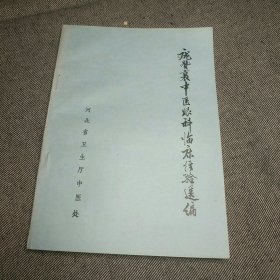 庞赞襄中医眼科临床经验选编
河北省卫生厅中医处